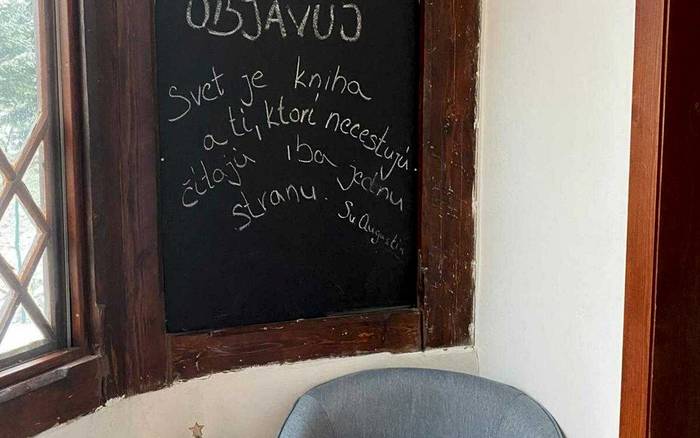 OBJAVUJ
Svet je kniha
a tí, ktorí necestujú,
čítajú iba jednu
stranu. Sv. Augustín